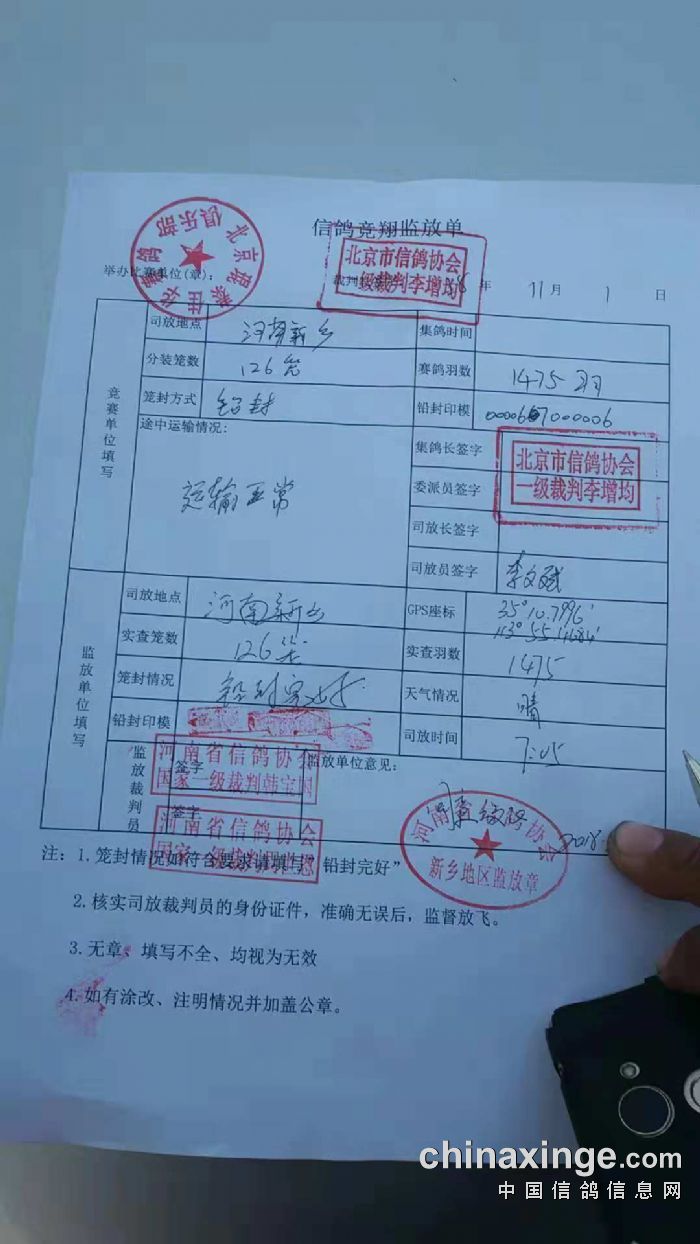 信鸽竞翔监放单
北京市信鸽协会
一级裁判李增均
俱乐部
举办比赛单位(章):
年 11月 1 日
竞赛单位填写
司放地点 河南新乡 集鸽时间
分装笼数 126笼 赛鸽羽数 1475羽
笼封方式 铅封 铅封印模
途中运输情况: 集鸽长签字
运输正常
北京市信鸽协会
一级裁判李增均
委派员签字
司放长签字
司放员签字
监放单位填写
司放地点 河南新乡 GPS座标 35°10.7996′
实查笼数 126笼 实查羽数 1475
笼封情况 天气情况 晴
铅封印模 司放时间 7:05
监放裁判员
签字 监放单位意见:
河南省信鸽协会
国家一级裁判韩宝国
签字
河南省信鸽协会
新乡地区监放章
2018
注: 1.笼封情况如符合要求请填写"铅封完好"
2.核实司放裁判员的身份证件，准确无误后，监督放飞。
3.无章、填写不全、均视为无效
4.如有涂改、注明情况并加盖公章。
chinaxinge.com
中国信鸽信息网